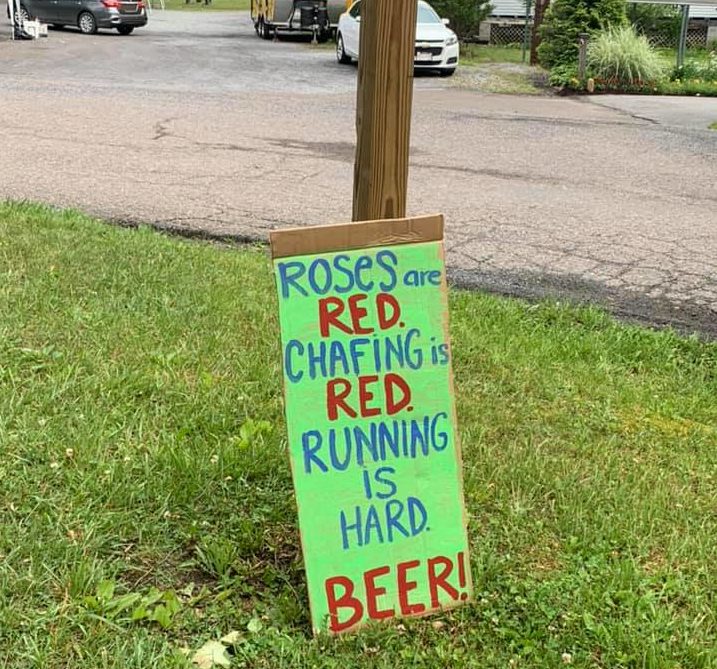 ROSES are
RED.
CHAFING is
RED.
RUNNING
IS
HARD.
BEER!